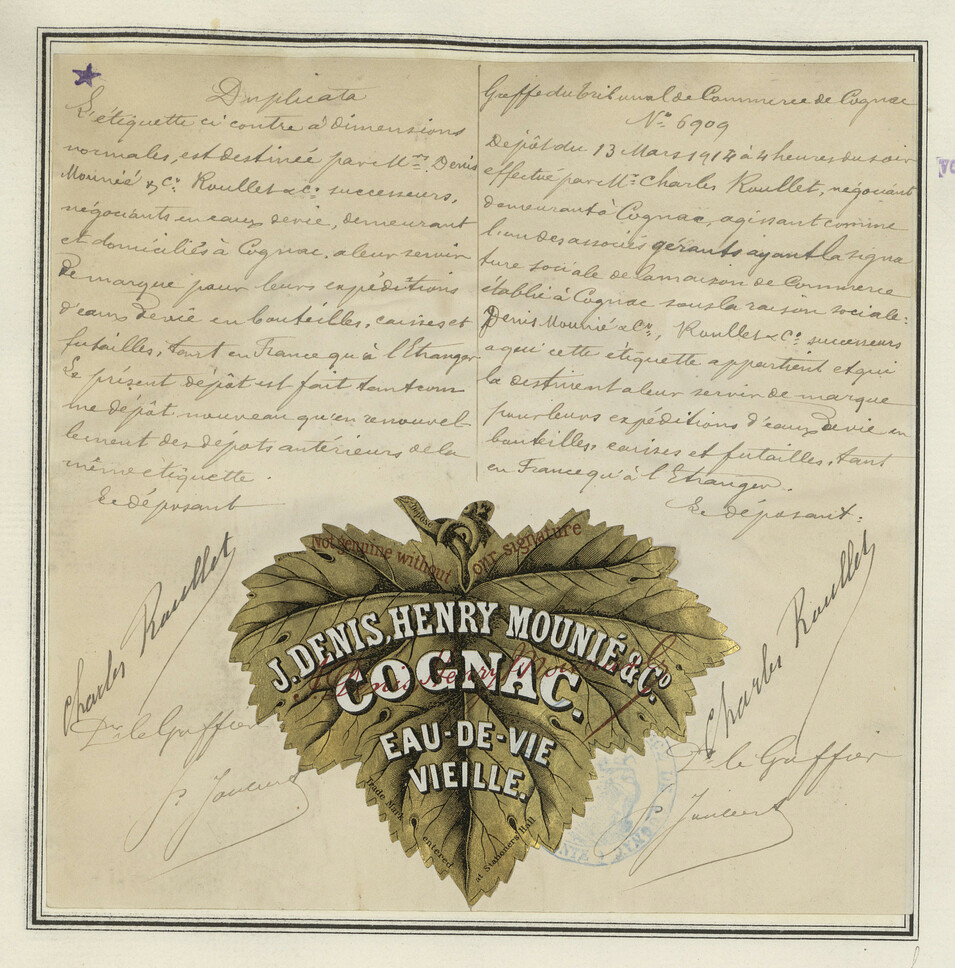 Duplicata
L'étiquette ci contre à dimensions
normales, est destinée par Mrs. Denis
Mounié & Co. Roullet & Co. successeurs,
négociants en eaux devie, demeurant
et domiciliés à Cognac, a leur servir
de marque pour leurs expéditions
d'eaux devie en bouteilles, caisses et
futailles, tant en France qu'à l'Etranger
Le présent dépôt est fait tant com
me dépôt nouveau qu'en renouvel
lement des dépots antérieurs de la
même étiquette.
Le déposant
Charles Roullet
Pr. le Greffier
Greffe du Tribunal de Commerce de Cognac
No 6909
Dépôt du 13 Mars 1914 à 4 heures du soir
effectué par Mr. Charles Roullet, négociant
demeurant à Cognac, agissant comme
l'un des associés gérants ayant la signa
ture sociale de la maison de Commerce
établie à Cognac sous la raison sociale:
Denis Mounié & Co., Roullet & Co. successeurs
a qui cette étiquette appartient et qui
la destinent a leur servir de marque
pour leurs expéditions d'eaux devie en
bouteilles, caisses et futailles, tant
en France qu'à l'Etranger.
Le déposant:
Charles Roullet
Pr. le Greffier
Déposé
Not genuine without our signature
J. DENIS, HENRY MOUNIÉ & Co.
COGNAC.
J. Denis Henry Mounié & Co
EAU-DE-VIE
VIEILLE.
Trade Mark
entered
at Stationers Hall